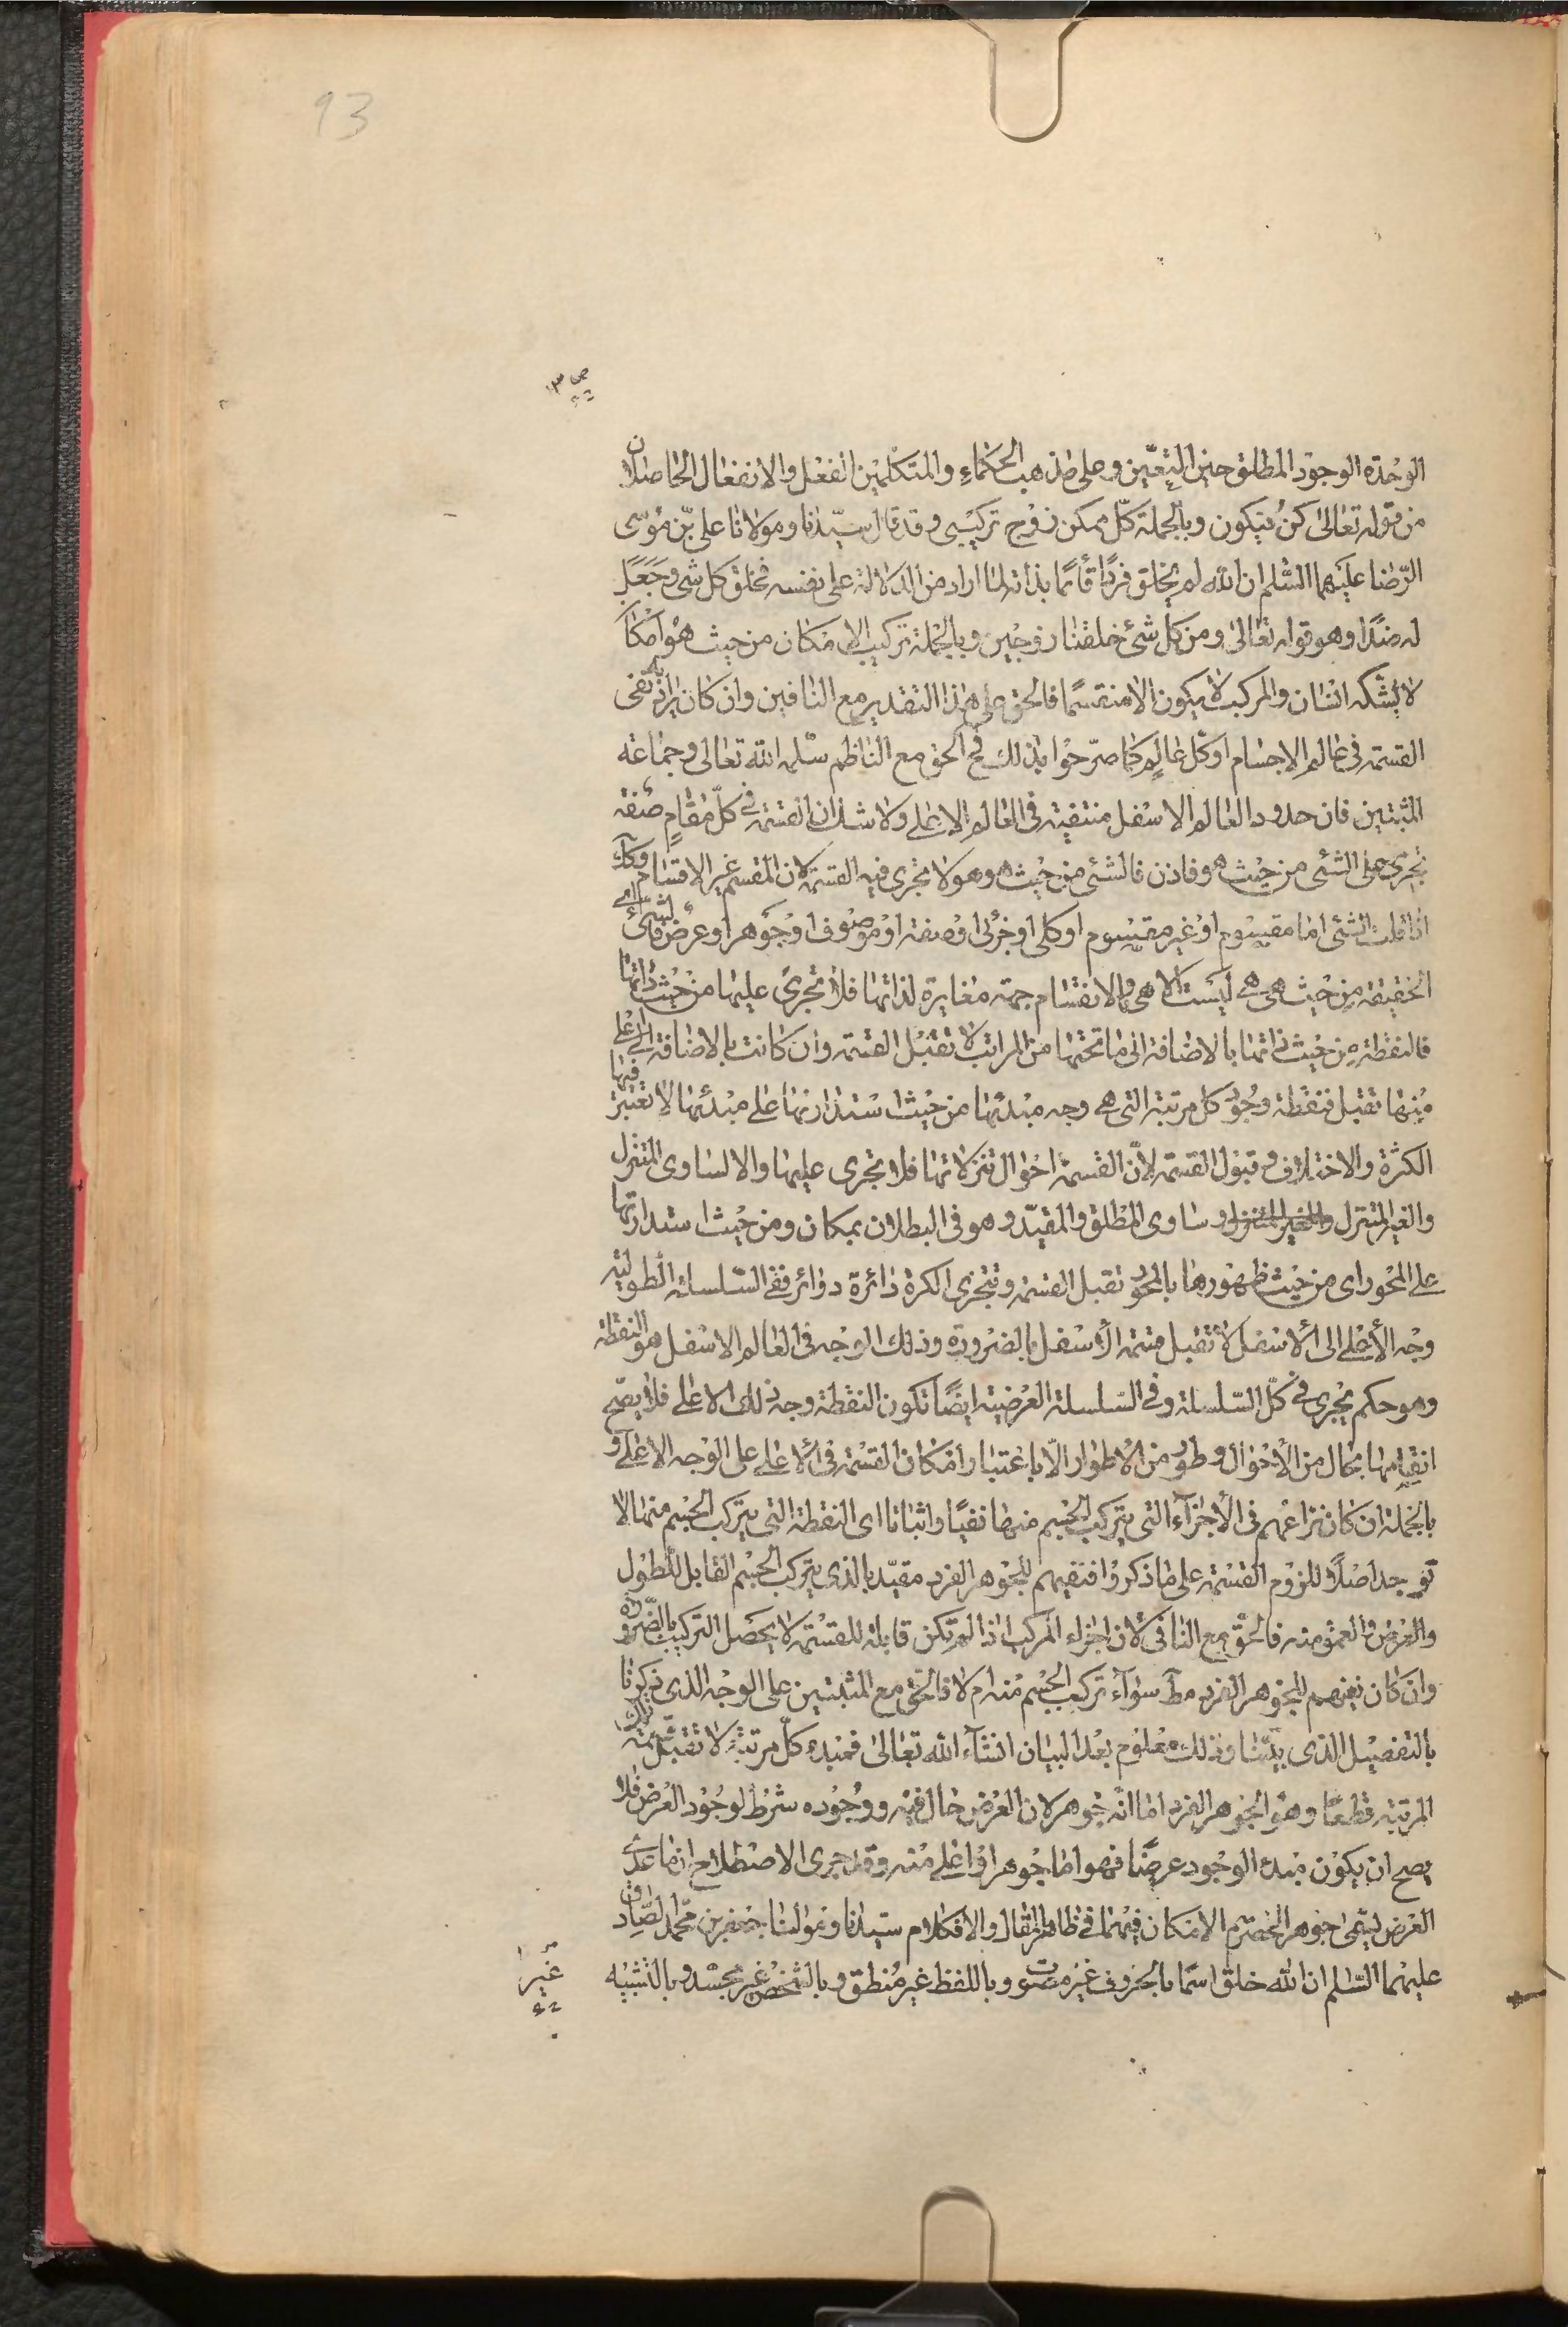 93
الوحدة الوجود المطلق حين التعيّن وعلى مذهب الحكماء والمتكلمين الفعل والانفعال الحاصلان
من قوله تعالى كن فيكون وبالجملة كلّ ممكن زوج تركيبي وقد قال سيّدنا ومولانا علي بن موسى
الرّضا عليهما السّلم ان الله لم يخلق فردًا قائمًا بذاته لما اراد من الدلالة على نفسه فخلق كل شئ وجعل
له ضدًا وهو قوله تعالى ومن كل شئ خلقنا زوجين وبالجملة تركيب الامكان من حيث هو امكان
لا يشكّه انسان والمركب لا يكون الا منقسمًا فالحق على هذا التقدير مع النافين وان كان نفى
القسمة في عالم الاجسام او كل عالم كما صرّحوا بذلك فالحق مع الناظم سلمه الله تعالى وجماعة
المثبتين فان حدود العالم الاسفل منتفية في العالم الاعلى ولا شك ان القسمة في كلّ مقام صفة
تجرى على الشئى من حيث هو فاذن فالشئى من حيث هو هو لا تجرى فيه القسمة لان المقسم غير الاقسام
اذا قلت الشئى اما مقسوم او غير مقسوم او كلى او جزئى او صفة او موصوف او جوهر او عرض
الحقيقة من حيث هي هي ليست الا هي والانقسام جهة مغايرة لذاتها فلا تجرى عليها من حيث ذاتها
فالنقطة من حيث ذاتها بالاضافة الى ما تحتها من المراتب لا تقبل القسمة وان كانت بالاضافة الى اعلى
منها تقبل فنقطة وجود كل مرتبة التي هي وجه مبدئها من حيث استدارتها على مبدئها لا تعتبر فيها
الكثرة والاختلاف وقبول القسمة لانّ القسمة احوال تنزلاتها فلا تجرى عليها والا لساوى المتنزل
والغير المتنزل وساوى المطلق والمقيّد وهو في البطلان بمكان ومن حيث استدارتها
على المحور اى من حيث ظهورها بالمحور تقبل القسمة وتتجزى الكرة دائرة دوائر ففي السّلسلة الطولية
وجه الأعلى الى الأسفل لا تقبل قسمة الأسفل بالضرورة وذلك الوجه في العالم الاسفل هو النقطة
وهو حكم يجرى في كلّ السّلسلة وفي السّلسلة العرضية ايضًا تكون النقطة وجه ذلك الاعلى فلا يصّح
انقسامها بحال من الأحوال وطور من الأطوار الّا باعتبار امكان القسمة في الأعلى على الوجه الاعلى و
بالجملة ان كان نزاعهم في الأجزآء التي يتركب الجسم منها نفيًا واثباتا اى النقطة التي يتركب الجسم منها لا
توجد اصلًا للزوم القسمة على ما ذكروا فنفيهم للجوهر الفرد مقيّد بالذى يتركب الجسم القابل للطول
والعرض والعمق منه فالحقّ مع النافى لأن اجزاء المركب اذا لم تكن قابلة للقسمة لا يحصل التركيب بالضّرورة
وان كان نفيهم للجوهر الفرد مط سوآء تركب الجسم منه ام لا فالحقّ مع المثبتين على الوجه الذى ذكرنا
بالتفصيل الذى بيّنّا وذلك معلوم بعد البيان انشآء الله تعالى فمبدء كلّ مرتبة لا تقبل قسمة تلك
المرتبة قطعًا وهو الجوهر الفرد اما انّه جوهر لان العرض حال فيه ووجوده شرط لوجود العرض فلا
يصح ان يكون مبدء الوجود عرضًا فهو اما جوهر او اعلى منه وقد جرى الاصطلاح ان ما عدى
العرض يسمّى جوهرا لحصرهم الامكان فيهما في ظاهر المقال والا فكلام سيّدنا ومولانا جعفر بن محمّد الصّادق
عليهما السّلم ان الله خلق اسمًا بالحروف غير مصوت وباللفظ غير منطق وبالشخص غير مجسّد وبالتشبيه
غير